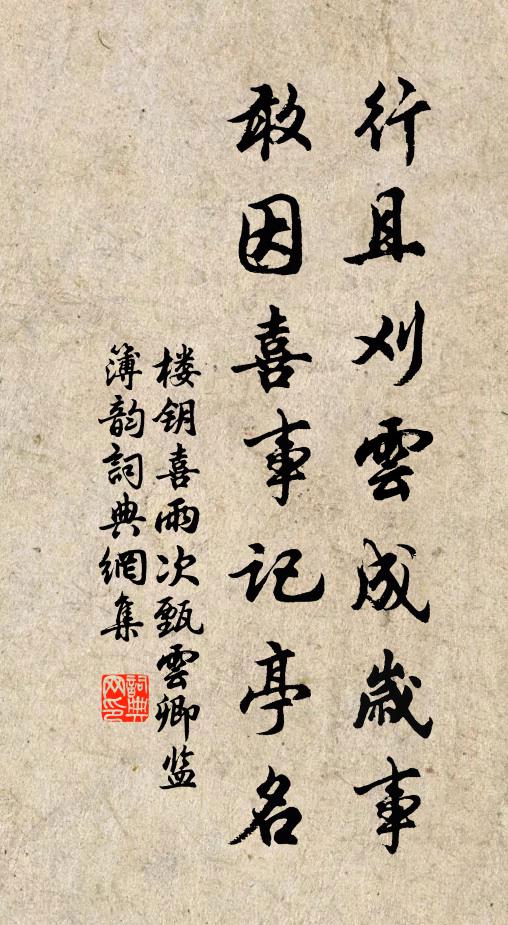 行且刈雲成歲事
敢因喜事記亭名
楼钥喜雨次甄雲卿监
簿韵詞典網集
詞典
网印